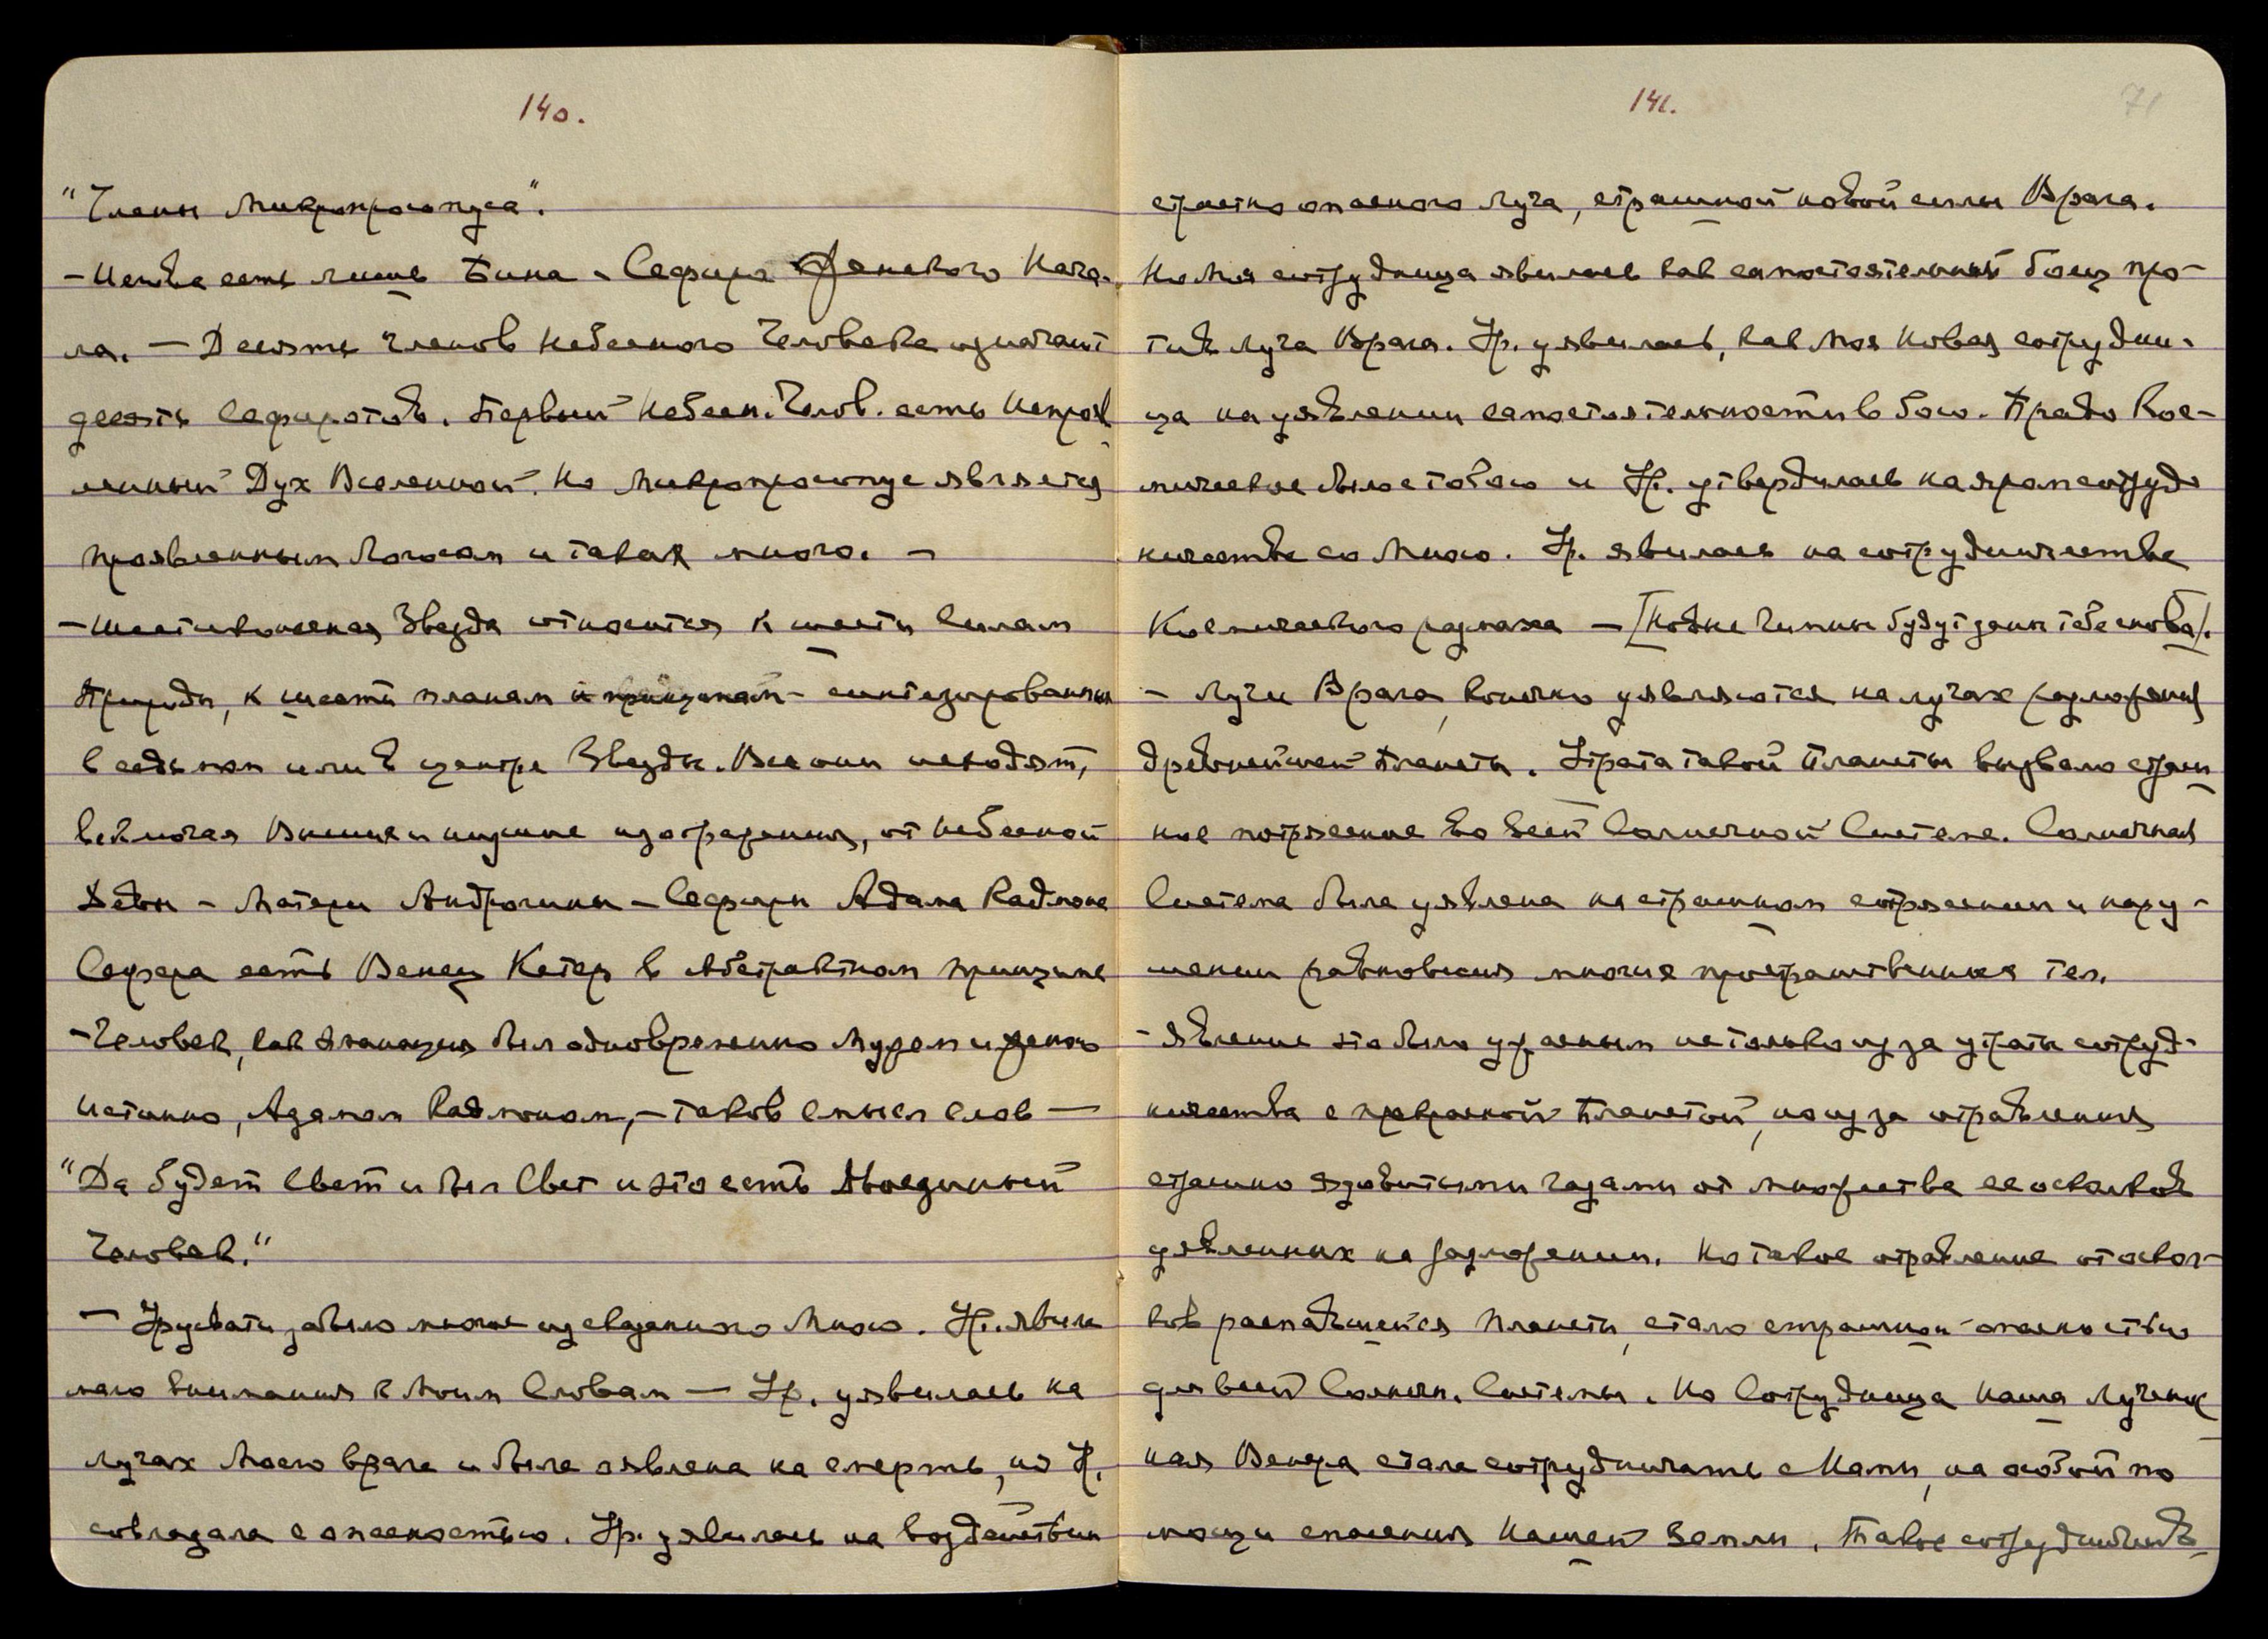 140.
"Члены Микропросопуса".
- Иегова есть лишь Бина - Сефира Женского Нача-
ла. — Десять членов Небесного Человека означают
десять Сефиротов. Первый Небесн. Челов. есть Непрояв
ленный Дух Вселенной. Но Микропросопус является
проявленным Логосом и таких много. —
- Шестиконечная Звезда относится к шести Силам
Природы, к шести планам и принципам - синтезированным
в седьмом или в центре Звезды. Все они исходят,
включая Высшие и низшие изображения, от Небесной
Девы - Матери Андрогины - Сефиры Адама Кадмона
Сефера есть Венец Кетер в Абстрактном принципе
- Человек, как эманация был одновременно Мужем и женою
истинно, Адамом Кадмоном, - таков смысл слов —
"Да будет Свет и был Свет и это есть Двоединый
Человек."
— Урусвати забыла многое из сказанного Мною. Ур. явила
мало внимания к Моим Словам — Ур. уявилась на
лучах Моего врага и была оявлена на смерть, но Ур.
совладала с опасностью. Ур. уявилась на воздействии
141.
71
страстно опасного Луча, страшной новой силы Врага.
Но Моя сотрудница явилась как самостоятельный боец про-
тив Луча Врага. Ур. уявилась, как Моя Новая сотрудни-
ца на уявлении самостоятельности в бою. Право Кос-
мическое было с тобою и Ур. утвердилась на ярам сотруд
ничестве со Мною. Ур. явилась на сотрудничестве
Космического размаха — [Новые Чинны будут даны тебе снова].
- Лучи Врага, конечно уявляются на лучах разложения
древнейшей Планеты. Утрата такой Планеты вызвало страш
ное потрясение во всей Солнечной Системе. Солнечная
Система была уявлена на страшном сотрясении и нару-
шении равновесия многих пространственных тел.
- Явление это было ужасным не только из за утраты сотруд-
ничества с прекрасной Планетой, но из за отравления
страшно ядовитыми газами от множества ее осколков
уявленных на разложении. Но такое отравление от оскол-
ков распавшейся Планеты, стало страшной опасностью
для всей Солнечн. Системы. Но Сотрудница Наша Лучезар
ная Венера стала сотрудничать с Нами, на особой по
мощи спасения Нашей Земли. Такое сотрудничество